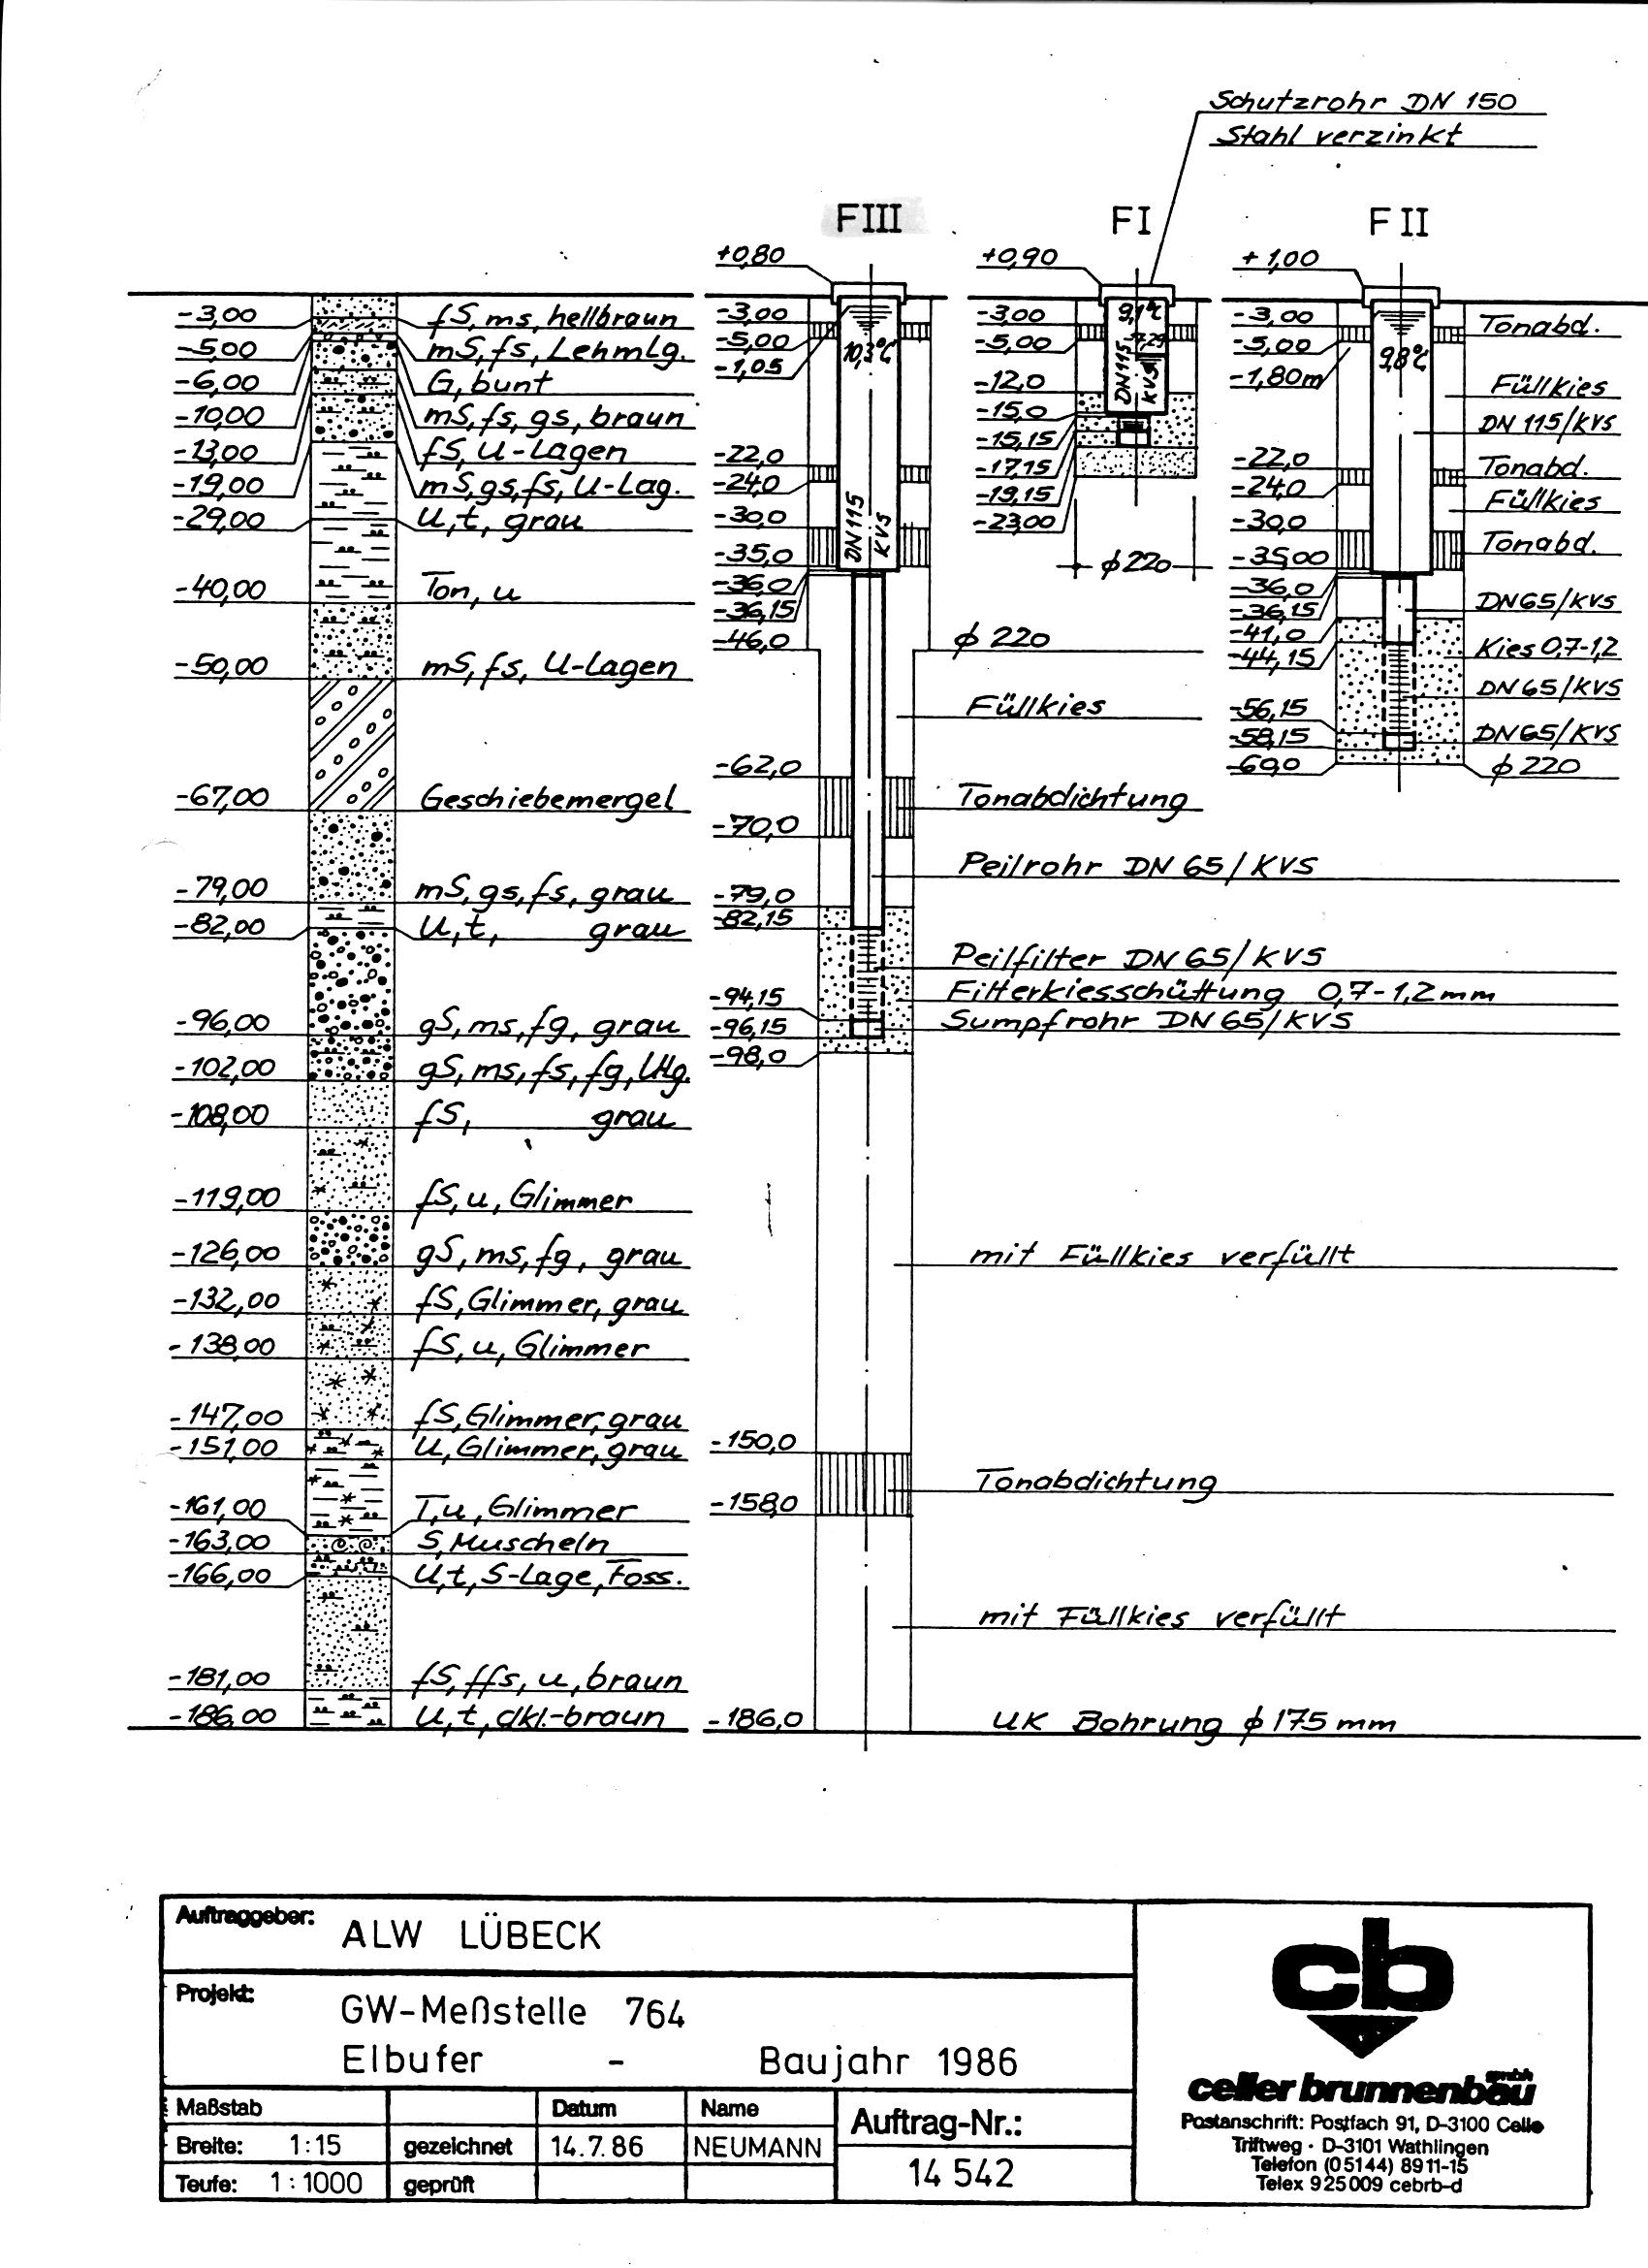 Schutzrohr DN 150
Stahl verzinkt
FIII
FI
FII
+0,80
+0,90
+1,00
-3,00 fS, ms, hellbraun
-5,00 mS, fs, Lehmlg.
-6,00 G, bunt
-10,00 mS, fs, gs, braun
-13,00 fS, U-Lagen
-19,00 mS, gs, fs, U-Lag.
-29,00 U, t, grau
-40,00 Ton, u
-50,00 mS, fs, U-Lagen
-67,00 Geschiebemergel
-79,00 mS, gs, fs, grau
-82,00 U, t, grau
-96,00 gS, ms, fg, grau
-102,00 gS, ms, fs, fg, Ulg.
-108,00 fS, grau
-119,00 fS, u, Glimmer
-126,00 gS, ms, fg, grau
-132,00 fS, Glimmer, grau
-138,00 fS, u, Glimmer
-147,00 fS, Glimmer, grau
-151,00 U, Glimmer, grau
-161,00 T, u, Glimmer
-163,00 S, Muscheln
-166,00 U, t, S-Lage, Foss.
-181,00 fS, ffs, u, braun
-186,00 U, t, dkl.-braun
-3,00
-5,00
-1,05
10,3°C
-22,0
-24,0
-30,0
-35,0
-36,0
-36,15
-46,0
DN 115
KVS
ϕ 220
Füllkies
-62,0
Tonabdichtung
-70,0
Peilrohr DN 65/KVS
-79,0
-82,15
Peilfilter DN 65/KVS
Filterkiesschüttung 0,7-1,2mm
-94,15
Sumpfrohr DN 65/KVS
-96,15
-98,0
mit Füllkies verfüllt
-150,0
Tonabdichtung
-158,0
mit Füllkies verfüllt
-186,0
UK Bohrung ϕ 175 mm
-3,00
-5,00
-12,0
-15,0
-15,15
-17,15
-19,15
-23,00
7,29
DN 115
KVS
ϕ 220
-3,00
-5,00
-1,80m
9,8°C
-22,0
-24,0
-30,0
-35,00
-36,0
-36,15
-41,0
-44,15
-56,15
-58,15
Tonabd.
Füllkies
DN 115/KVS
Tonabd.
Füllkies
Tonabd.
DN65/KVS
Kies 0,7-1,2
DN 65/KVS
DN65/KVS
ϕ 220
Auftraggeber: ALW LÜBECK
Projekt: GW-Meßstelle 764
Elbufer - Baujahr 1986
Maßstab Datum Name
Breite: 1:15 gezeichnet 14.7.86 NEUMANN
Teufe: 1:1000 geprüft
Auftrag-Nr.:
14 542
cb
celler brunnenbau gmbh
Postanschrift: Postfach 91, D-3100 Celle
Triftweg · D-3101 Wathlingen
Telefon (05144) 8911-15
Telex 925009 cebrb-d